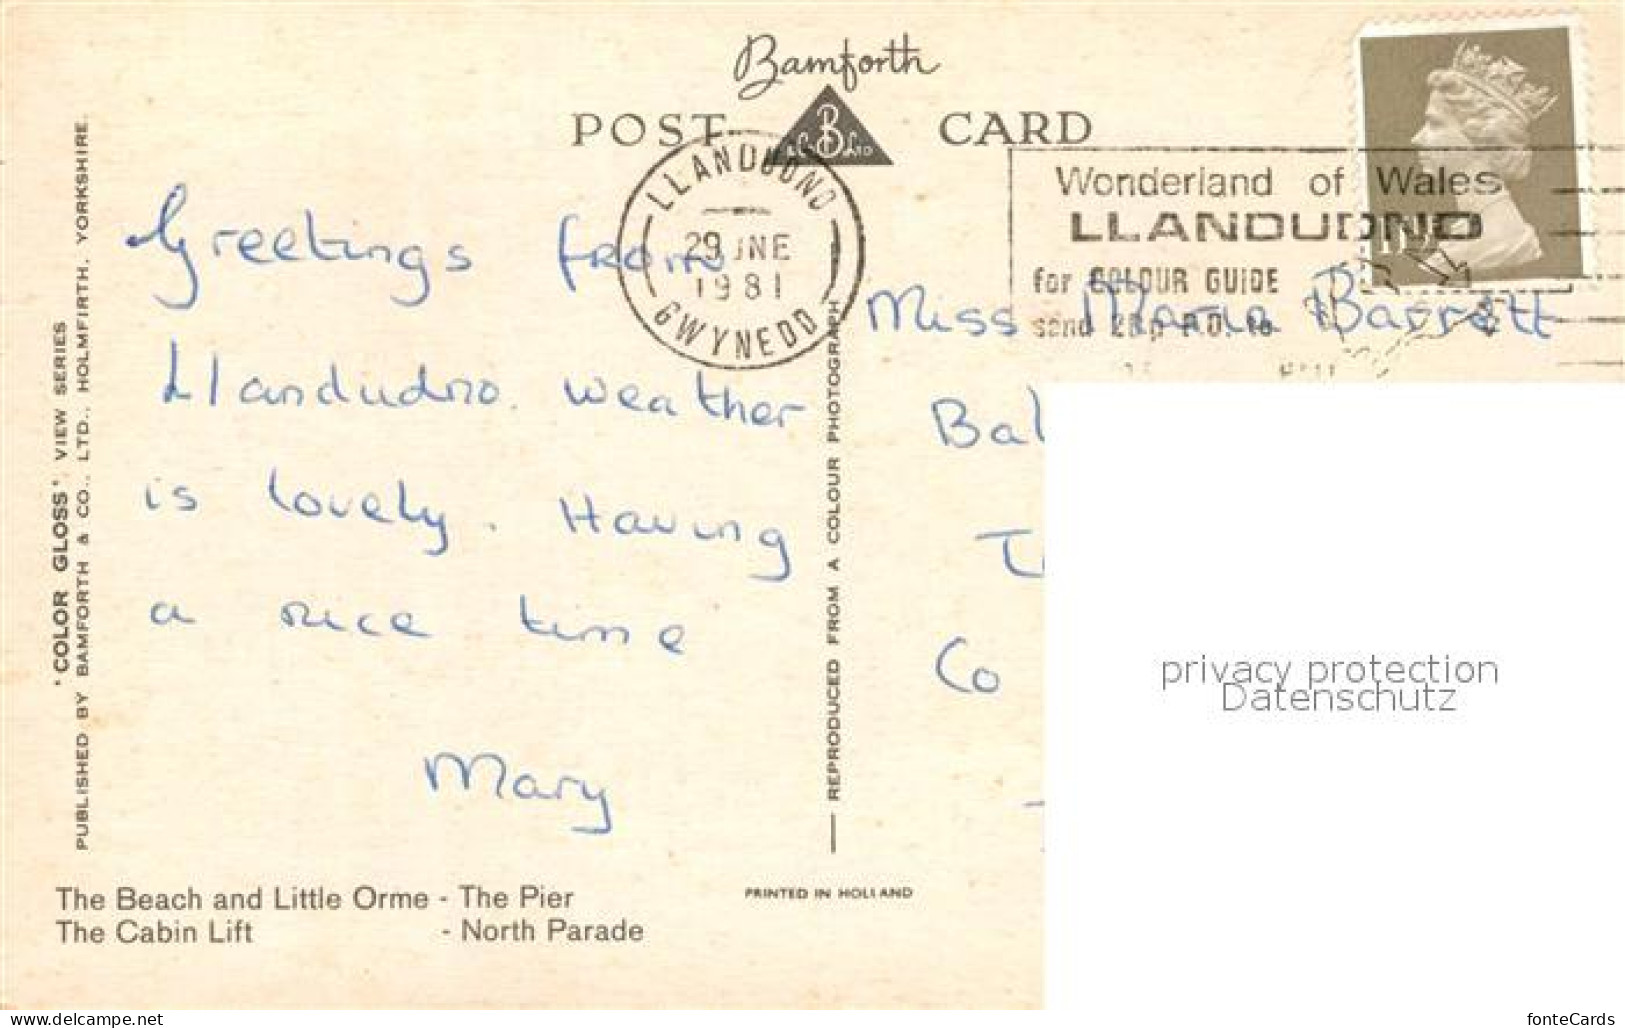 Bamforth
POST CARD
B
& Co LTD
LLANDUDNO
29 JNE
1981
GWYNEDD
Wonderland of Wales
LLANDUDNO
for COLOUR GUIDE
send P.O. to
Greetings from
Llandudno. weather
is lovely. Having
a nice time
Mary
Miss Maria Barrett
Bal
Co
'COLOR GLOSS' VIEW SERIES
PUBLISHED BY BAMFORTH & CO., LTD., HOLMFIRTH, YORKSHIRE.
REPRODUCED FROM A COLOUR PHOTOGRAPH
The Beach and Little Orme - The Pier
The Cabin Lift - North Parade
PRINTED IN HOLLAND
privacy protection
Datenschutz
www.delcampe.net
fonteCards